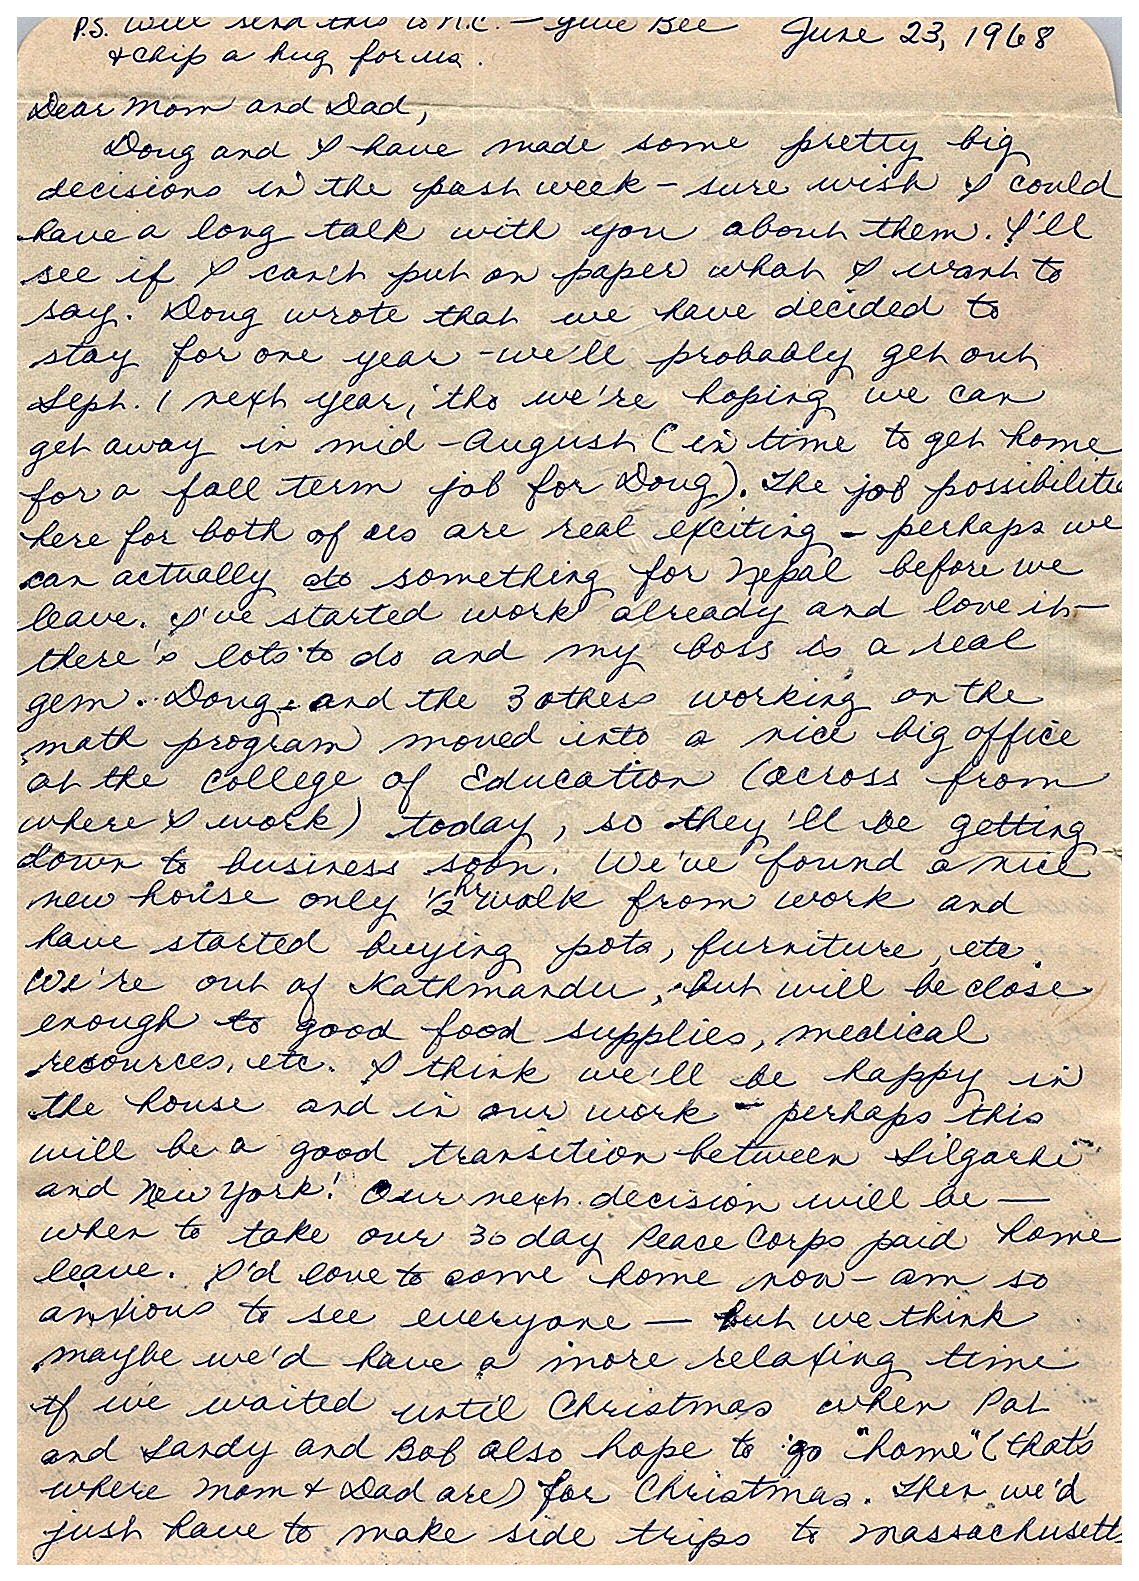 P.S. Will send this to N.C. - give Bee
& Chip a hug for us.
June 23, 1968
Dear Mom and Dad,
Doug and I have made some pretty big
decisions in the past week - sure wish I could
have a long talk with you about them. I'll
see if I can't put on paper what I want to
say. Doug wrote that we have decided to
stay for one year - we'll probably get out
Sept. 1 next year, tho we're hoping we can
get away in mid-August (in time to get home
for a fall term job for Doug). The job possibilitie
here for both of us are real exciting - perhaps we
can actually do something for Nepal before we
leave. I've started work already and love it -
there's lots to do and my boss is a real
gem. Doug and the 3 others working on the
math program moved into a nice big office
at the College of Education (across from
where I work) today, so they'll be getting
down to business soon. We've found a nice
new house only 1/2 hr walk from work and
have started buying pots, furniture, etc.
We're out of Kathmandu, but will be close
enough to good food supplies, medical
resources, etc. I think we'll be happy in
the house and in our work - perhaps this
will be a good transition between Silgarhi
and New York! Our next decision will be -
when to take our 30 day Peace Corps paid home
leave. I'd love to come home now - am so
anxious to see everyone - but we think
maybe we'd have a more relaxing time
if we waited until Christmas when Pat
and Sandy and Bob also hope to go "home" (that's
where Mom & Dad are) for Christmas. Then we'd
just have to make side trips to Massachusetts